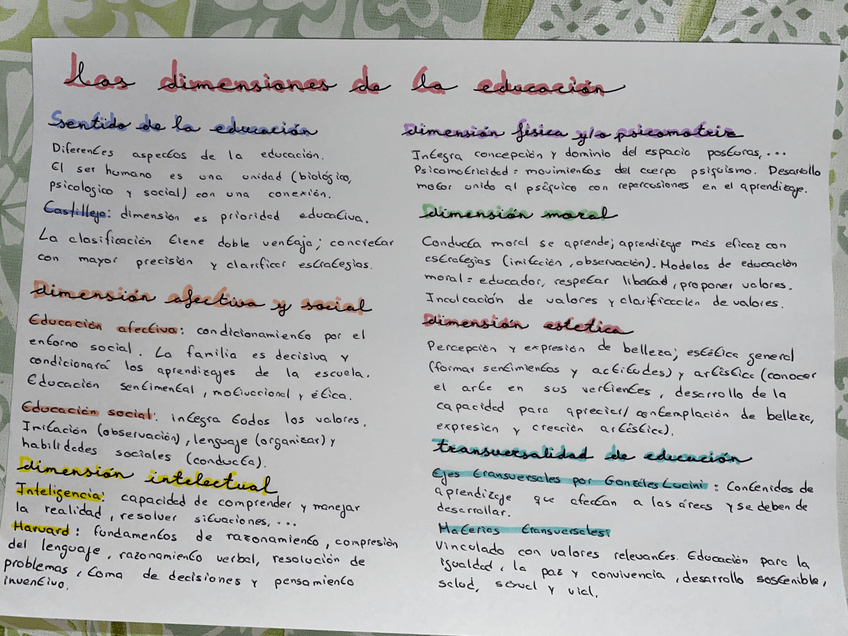 Las dimensiones de la educación
Sentido de la educación
Diferentes aspectos de la educación.
El ser humano es una unidad (biológico,
psicologico y social) con una conexión.
Castillejo: dimension es prioridad educativa.
La clasificación tiene doble ventaja; concretar
con mayor precisión y clarificar estrategias.
dimensión afectiva y social
Educación afectiva: condicionamiento por el
entorno social. La familia es decisiva y
condicionará los aprendizajes de la escuela.
Educación sentimental, motivacional y ética.
Educación social: integra todos los valores.
Imitación (observación), lenguaje (organizar) y
habilidades sociales (conducta).
dimensión intelectual
Inteligencia: capacidad de comprender y manejar
la realidad, resolver situaciones, ...
Harvard: fundamentos de razonamiento, compresión
del lenguaje, razonamiento verbal, resolución de
problemas, toma de decisiones y pensamiento
inventivo.
dimensión física y/o psicomotriz
Integra concepción y dominio del espacio posturas, ...
Psicomotricidad = movimientos del cuerpo psiquismo. Desarrollo
motor unido al psíquico con repercusiones en el aprendizaje.
dimensión moral
Conducta moral se aprende; aprendizaje más eficaz con
estrategias (imitación, observación). Modelos de educación
moral = educador, respetar libertad, proponer valores.
Inculcación de valores y clarificación de valores.
dimensión estética
Percepción y expresión de belleza; estética general
(formar sentimientos y actitudes) y artística (conocer
el arte en sus vertientes, desarrollo de la
capacidad para apreciar/contemplación de belleza,
expresión y creación artística).
transversalidad de educación
Ejes transversales por González Lucini: Contenidos de
aprendizaje que afectan a las áreas y se deben de
desarrollar.
Materias transversales:
Vinculado con valores relevantes. Educación para la
igualdad, la paz y convivencia, desarrollo sostenible,
salud, sexual y vial.